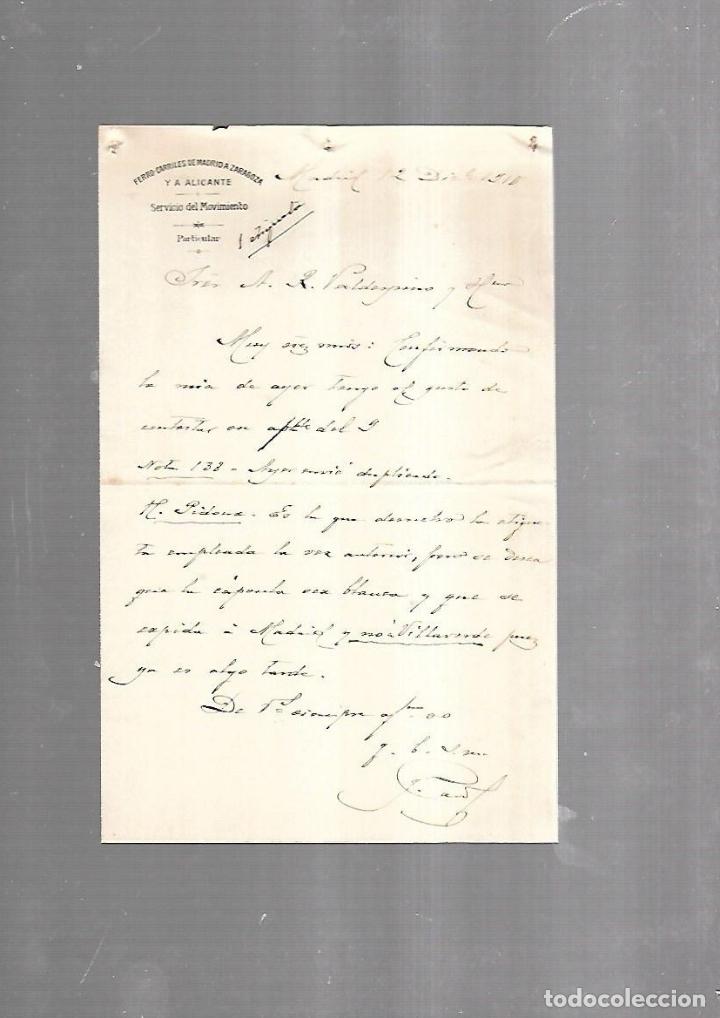 FERRO-CARRILES DE MADRID A ZARAGOZA
Y A ALICANTE
Servicio del Movimiento
Particular
Madrid 12 Dicbe 1910
1 etiqueta
Sres A. R. Valdespino y Hno
Muy Srez mios: Confirmando
la mia de ayer tengo el gusto de
contestar su aptble del 9
Nota 138 - Ayer envié duplicado.
H. Pidoux. Es la que demuestra la etique
ta empleada la vez anterior, pero se desea
que la cápsula sea blanca y que se
expida á Madrid y no á Villaverde pues
ya es algo tarde.
De Vs siempre
todocoleccion
todocoleccion.net